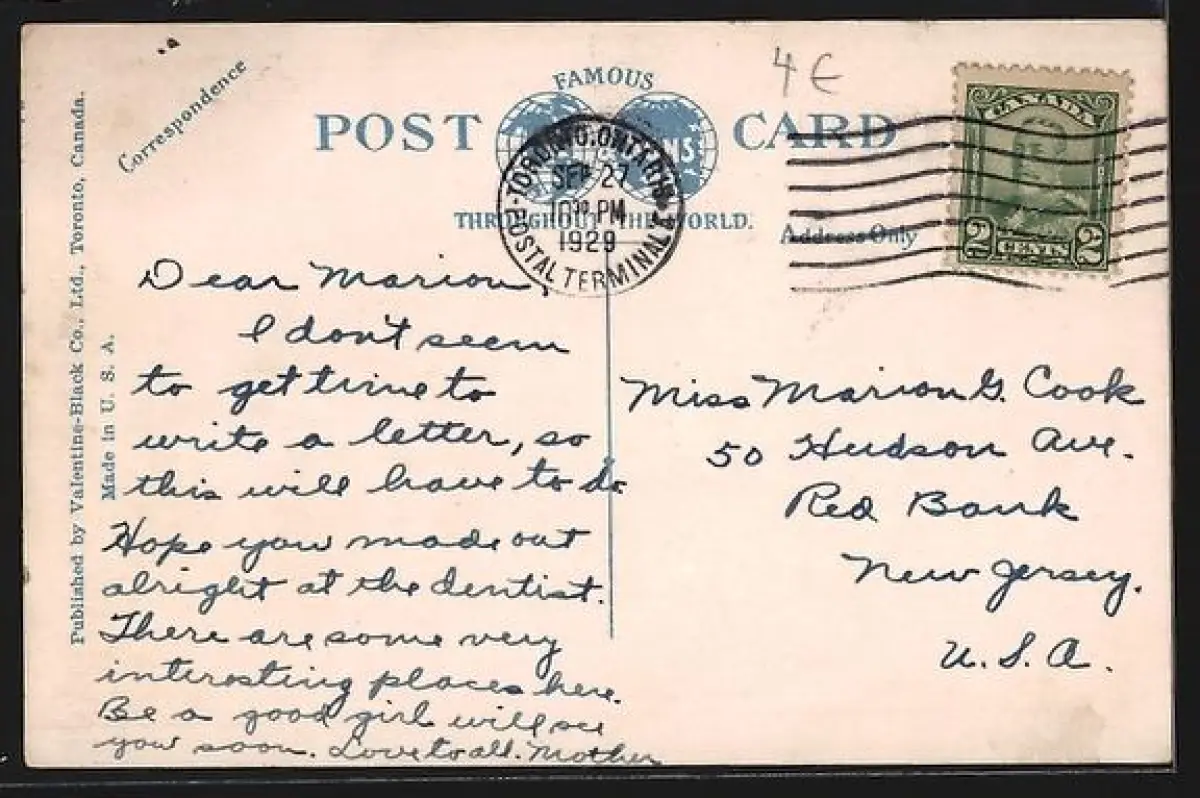 Correspondence
4 €
FAMOUS
POST CARD
THROUGHOUT THE WORLD.
Address Only
TORONTO, ONTARIO
SEP 27
10 30 PM
1929
POSTAL TERMINAL A
CANADA
2 CENTS 2
Published by Valentine-Black Co., Ltd., Toronto, Canada.
Made in U. S. A.
Dear Marion,
I don't seem
to get time to
write a letter, so
this will have to do.
Hope you made out
alright at the dentist.
There are some very
interesting places here.
Be a good girl will see
you soon. Love to all. Mother
Miss Marion G. Cook
50 Hudson Ave.
Red Bank
New Jersey.
U. S. A.